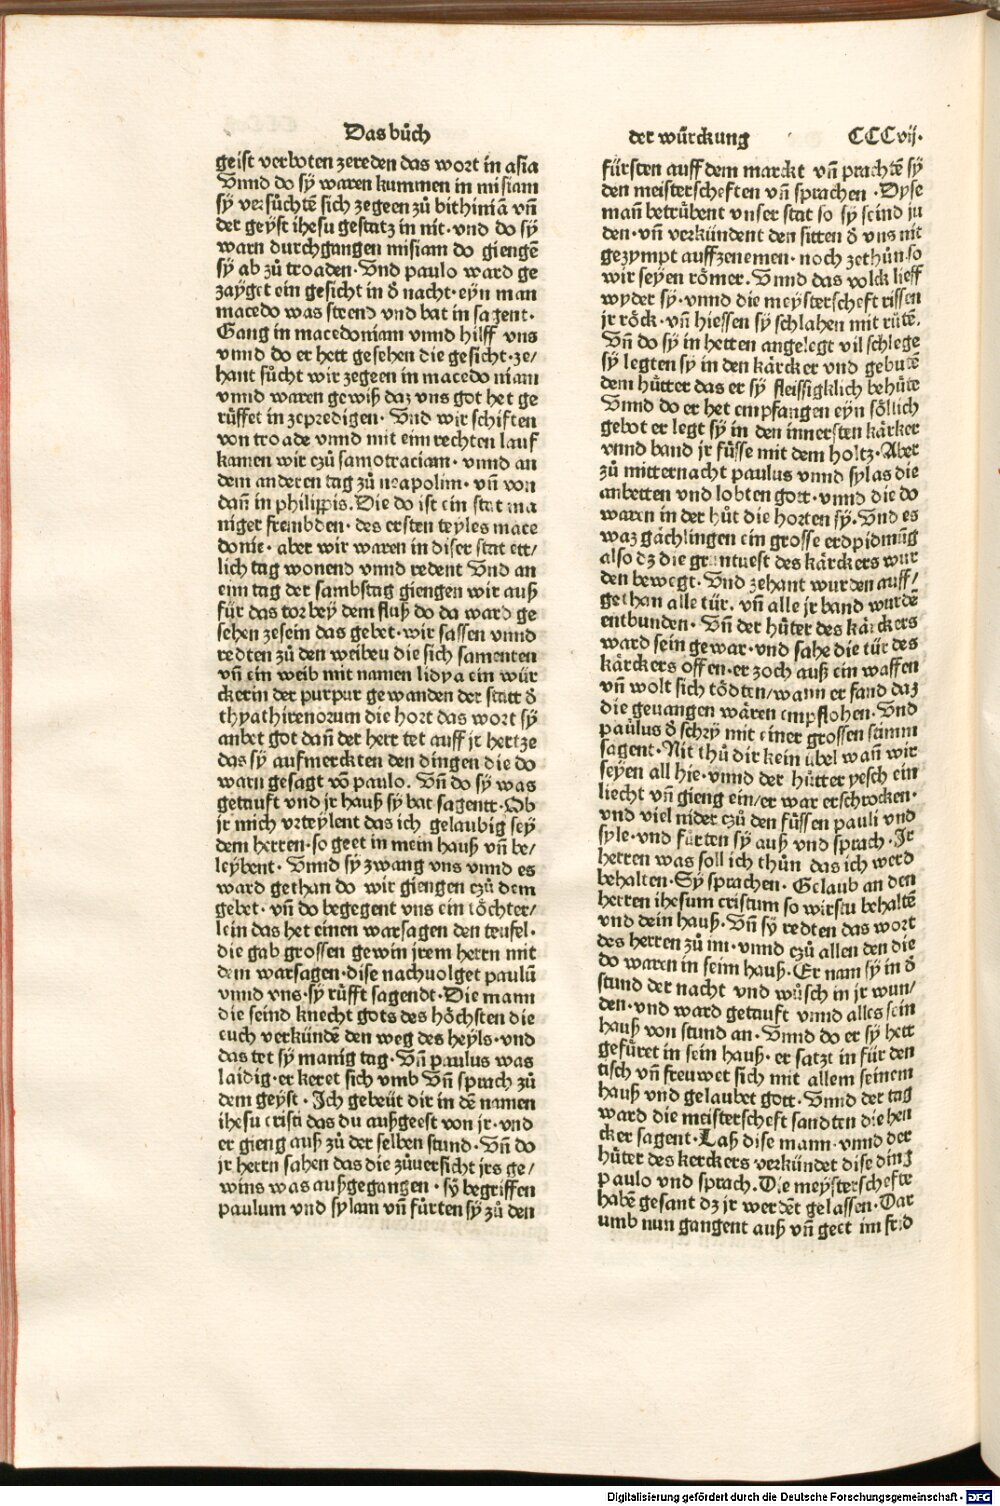 Das bůch
der würckung CCCvij.
geist verboten zereden das wort in asia
Vnnd do sÿ waren kummen in misiam
sÿ versůchtē sich zegeen zů bithiniā vñ
der geyst ihesu gestatz in nit· vnd do sÿ
warn durchgangen misiam do giengē
sÿ ab zů troaden· Vnd paulo ward ge
zayget ein gesicht in d̄ nacht· eyn man
macedo was steend vnd bat in sagent·
Gang in macedoniam vnnd hilff vns
vnnd do er hett gesehen die gesicht· ze/
hant sůcht wir zegeen in macedoniam
vnnd waren gewiß daz vns got het ge
rüffet in zepredigen· Vnd wir schiften
von troade vnnd mit eim rechten lauf
kamen wir czů samotraciam· vnnd an
dem anderen tag zů neapolim· vñ von
dañ in philippis. Die do ist ein stat ma
niger frembden· des ersten teyles mace
donie· aber wir waren in diser stat ett/
lich tag wonend vnnd redent Vnd an
eim tag der sambstag giengen wir auß
für das tor bey dem fluß do da ward ge
sehen zesein das gebet· wir sassen vnnd
redten zů den weiben die sich samenten
vñ ein weib mit namen lidya ein wür
ckerin der purpur gewanden der statt d̄
thyathirenorum die hort das wort sÿ
anbet got dañ der herr tet auff jr hertze
das sÿ aufmerckten den dingen die do
warn gesagt vō paulo. Vñ do sÿ was
getauft vnd jr hauß sÿ bat sagentt· Ob
jr mich vrteylent das ich gelaubig sey
dem herren· so geet in mein hauß vñ be/
leybent· Vnnd sÿ zwang vns vnnd es
ward gethan do wir giengen czů dem
gebet· vñ do begegent vns ein töchter/
lein das het einen warsagen den teufel·
die gab grossen gewin jrem herrn mit
dem warsagen· dise nachuolget paulū
vnnd vns· sÿ růfft sagendt· Die mann
die seind knecht gots des höchsten die
euch verkündē den weg des heyls· vnd
das tet sÿ manig tag· Vñ paulus was
laidig· er keret sich vmb Vñ sprach zů
dem geyst· Ich gebeüt dir in dē namen
ihesu cristi das du außgeest von jr· vnd
er gieng auß zů der selben stund· Vñ do
jr herrn sahen das die zůuersicht jrs ge/
wins was außgegangen· sÿ begriffen
paulum vnd sylam vñ fürten sÿ zů den
fürsten auff dem marckt vñ prachtē sÿ
den meisterscheften vñ sprachen· Dyse
mañ betrübent vnser stat so sÿ seind ju
den· vñ verkündent den sitten d̄ vns nit
gezympt auffzenemen· noch zethůn so
wir seyen römer. Vnnd das volck lieff
wyder sÿ· vnnd die meysterscheft rissen
jr röck· vñ hiessen sÿ schlahen mit rütē.
Vñ do sÿ in hetten angelegt vil schlege
sÿ legten sÿ in den kärcker vnd gebutē
dem hütter das er sÿ fleissigklich behüte
Vnnd do er het empfangen eyn söllich
gebot er legt sÿ in den innersten kärker
vnnd band jr füsse mit dem holtz· Aber
zů mitternacht paulus vnnd sylas die
anbetten vnd lobten gott· vnnd die do
waren in der hůt die horten sÿ. Vnd es
waz gächlingen ein grosse erdpidmūg
also dz die gruntuest des kärckers wur
den bewegt· Vnd zehant wurden auff/
gethan alle tür. vñ alle jr band wurdē
entbunden· Vñ der hüter des kärckers
ward sein gewar· vnd sahe die tür des
kärckers offen· er zoch auß ein waffen
vñ wolt sich tödten/ wann er fand daz
die geuangen wären empflohen· Vnd
paulus d̄ schrÿ mit einer grossen stimm
sagent· Nit thů dir kein übel wañ wir
seyen all hie· vnnd der hütter yesch ein
liecht vñ gieng ein/ er war erschrocken·
vnd viel nider czů den füssen pauli vnd
syle· vnd fürten sÿ auß vnd sprach· Ir
herren was soll ich thůn das ich werd
behalten· Sÿ sprachen· Gelaub an den
herren ihesum cristum so wirstu behaltē
vnd dein hauß. Vñ sÿ redten das wort
des herren zů im· vnnd czů allen den die
do waren in seim hauß· Er nam sÿ in d̄
stund der nacht vnd wůsch in jr wun/
den· vnd ward getauft vnnd alles sein
hauß von stund an· Vnnd do er sÿ hett
gefüret in sein hauß· er satzt in für den
tisch vñ freuwet sich mit allem seinem
hauß vnd gelaubet gott· Vnnd der tag
ward die meisterscheft sandten die hen
cker sagent· Laß dise mann· vnnd der
hüter des kerckers verkündet dise ding
paulo vnd sprach. Die meysterschefte
habē gesant dz jr werdēt gelassen· Dar
umb nun gangent auß vñ geet im frid
Digitalisierung gefördert durch die Deutsche Forschungsgemeinschaft - DFG